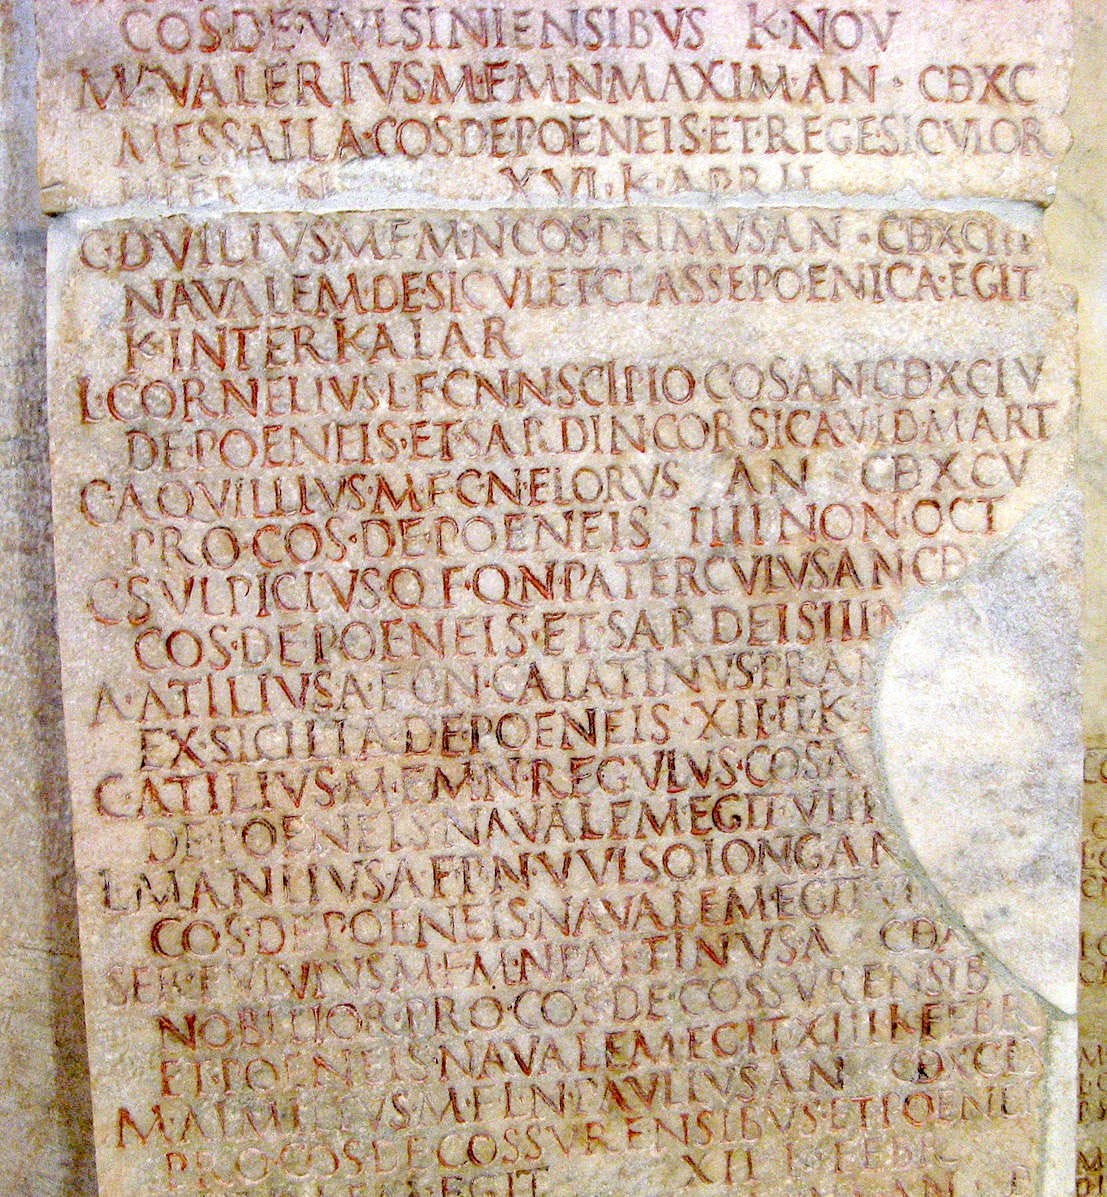 COS·DE·VVLSINIENSIBVS K·NOV
M·VALERIVS·M·F·M·N·MAXIM·AN· CDXC
MESSALLA·COS·DE·POENEIS·ET·REGE·SICVLOR
HIER XVI·K·APRIL
C·DVILIVS·M·F·M·N·COS·PRIMVS·AN· CDXCIII
NAVALEM·DE·SICVL·ET·CLASSE·POENICA·EGIT
K·INTERKALAR
L·CORNELIVS·L·F·CN·N·SCIPIO COS·AN·CDXCIV
DE·POENEIS·ET·SARDIN·CORSICA·V·ID·MART
C·AQVILLIVS·M·F·C·N·FLORVS AN CDXCV
PRO·COS·DE·POENEIS IIII·NON·OCT
C·SVLPICIVS·Q·F·Q·N·PATERCVLVS·AN·CD
COS·DE·POENEIS·ET·SARDEIS·III·N
A·ATILIVS·A·F·C·N·CALATINVS·PR·AN
EX·SICILIA·DE·POENEIS·XIIII·K
C·ATILIVS·M·F·M·N·REGVLVS·COS·A
DE·POENEIS·NAVALEM·EGIT·VIII
L·MANLIVS·A·F·P·N·VVLSO·LONG·AN
COS·DE·POENEIS·NAVALEM·EGIT·VI
SER·FVLVIVS·M·F·M·N·PAETINVS·A CDX
NOBILIOR·PRO·COS·DE·COSSVRENSIB
ET·POENEIS·NAVALEM·EGIT·XIII·K·FEBR
M·AIMILIVS·M·F·L·N·PAVLLVS·AN CDXCIX
PRO·COS·DE·COSSVRENSIBVS·ET·POENEIS
EGIT XII K·FEBR